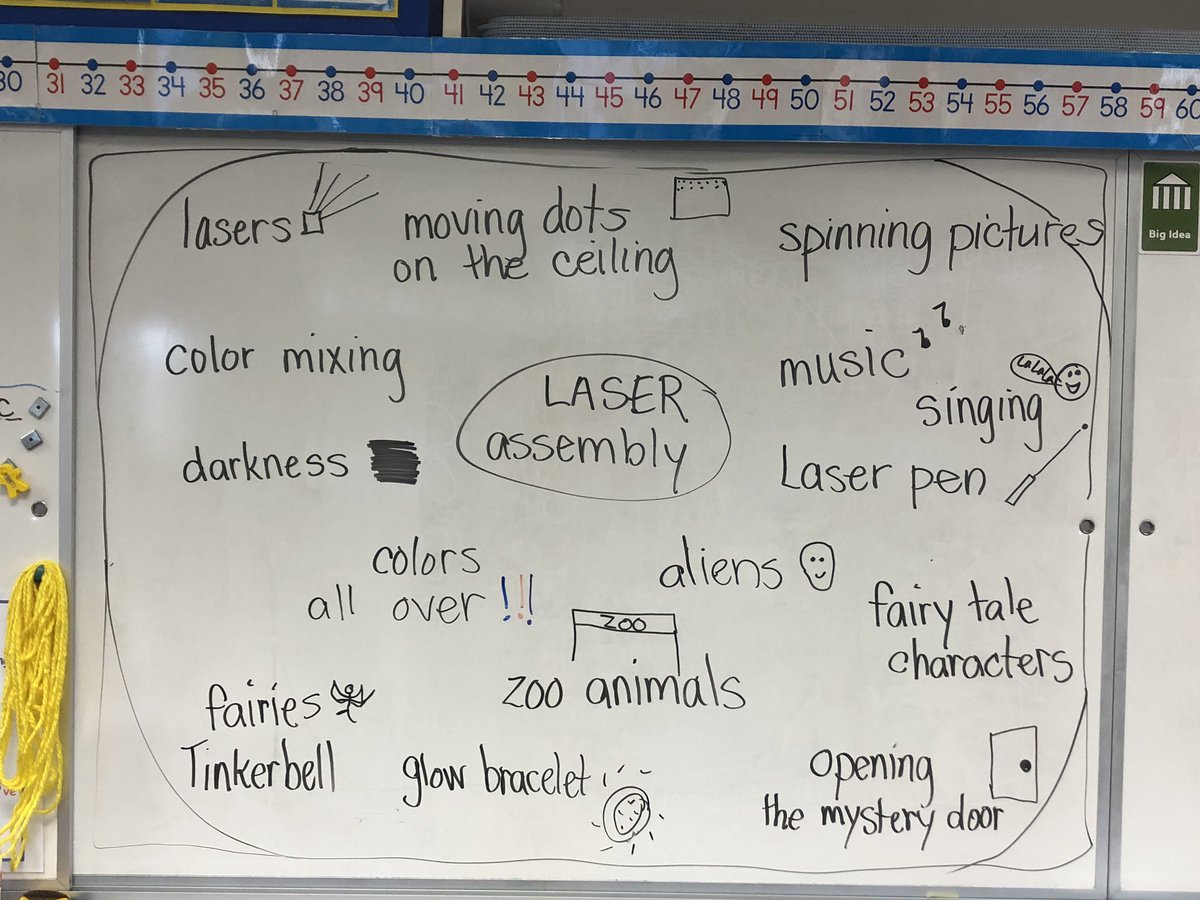 30 31 32 33 34 35 36 37 38 39 40 41 42 43 44 45 46 47 48 49 50 51 52 53 54 55 56 57 58 59 60
Big Idea
lasers
moving dots
on the ceiling
spinning pictures
color mixing
LASER
assembly
music
LaLaLa
singing
darkness
Laser pen
colors
all over !!!
aliens
fairy tale
characters
ZOO
zoo animals
fairies
Tinkerbell
glow bracelet
opening
the mystery door